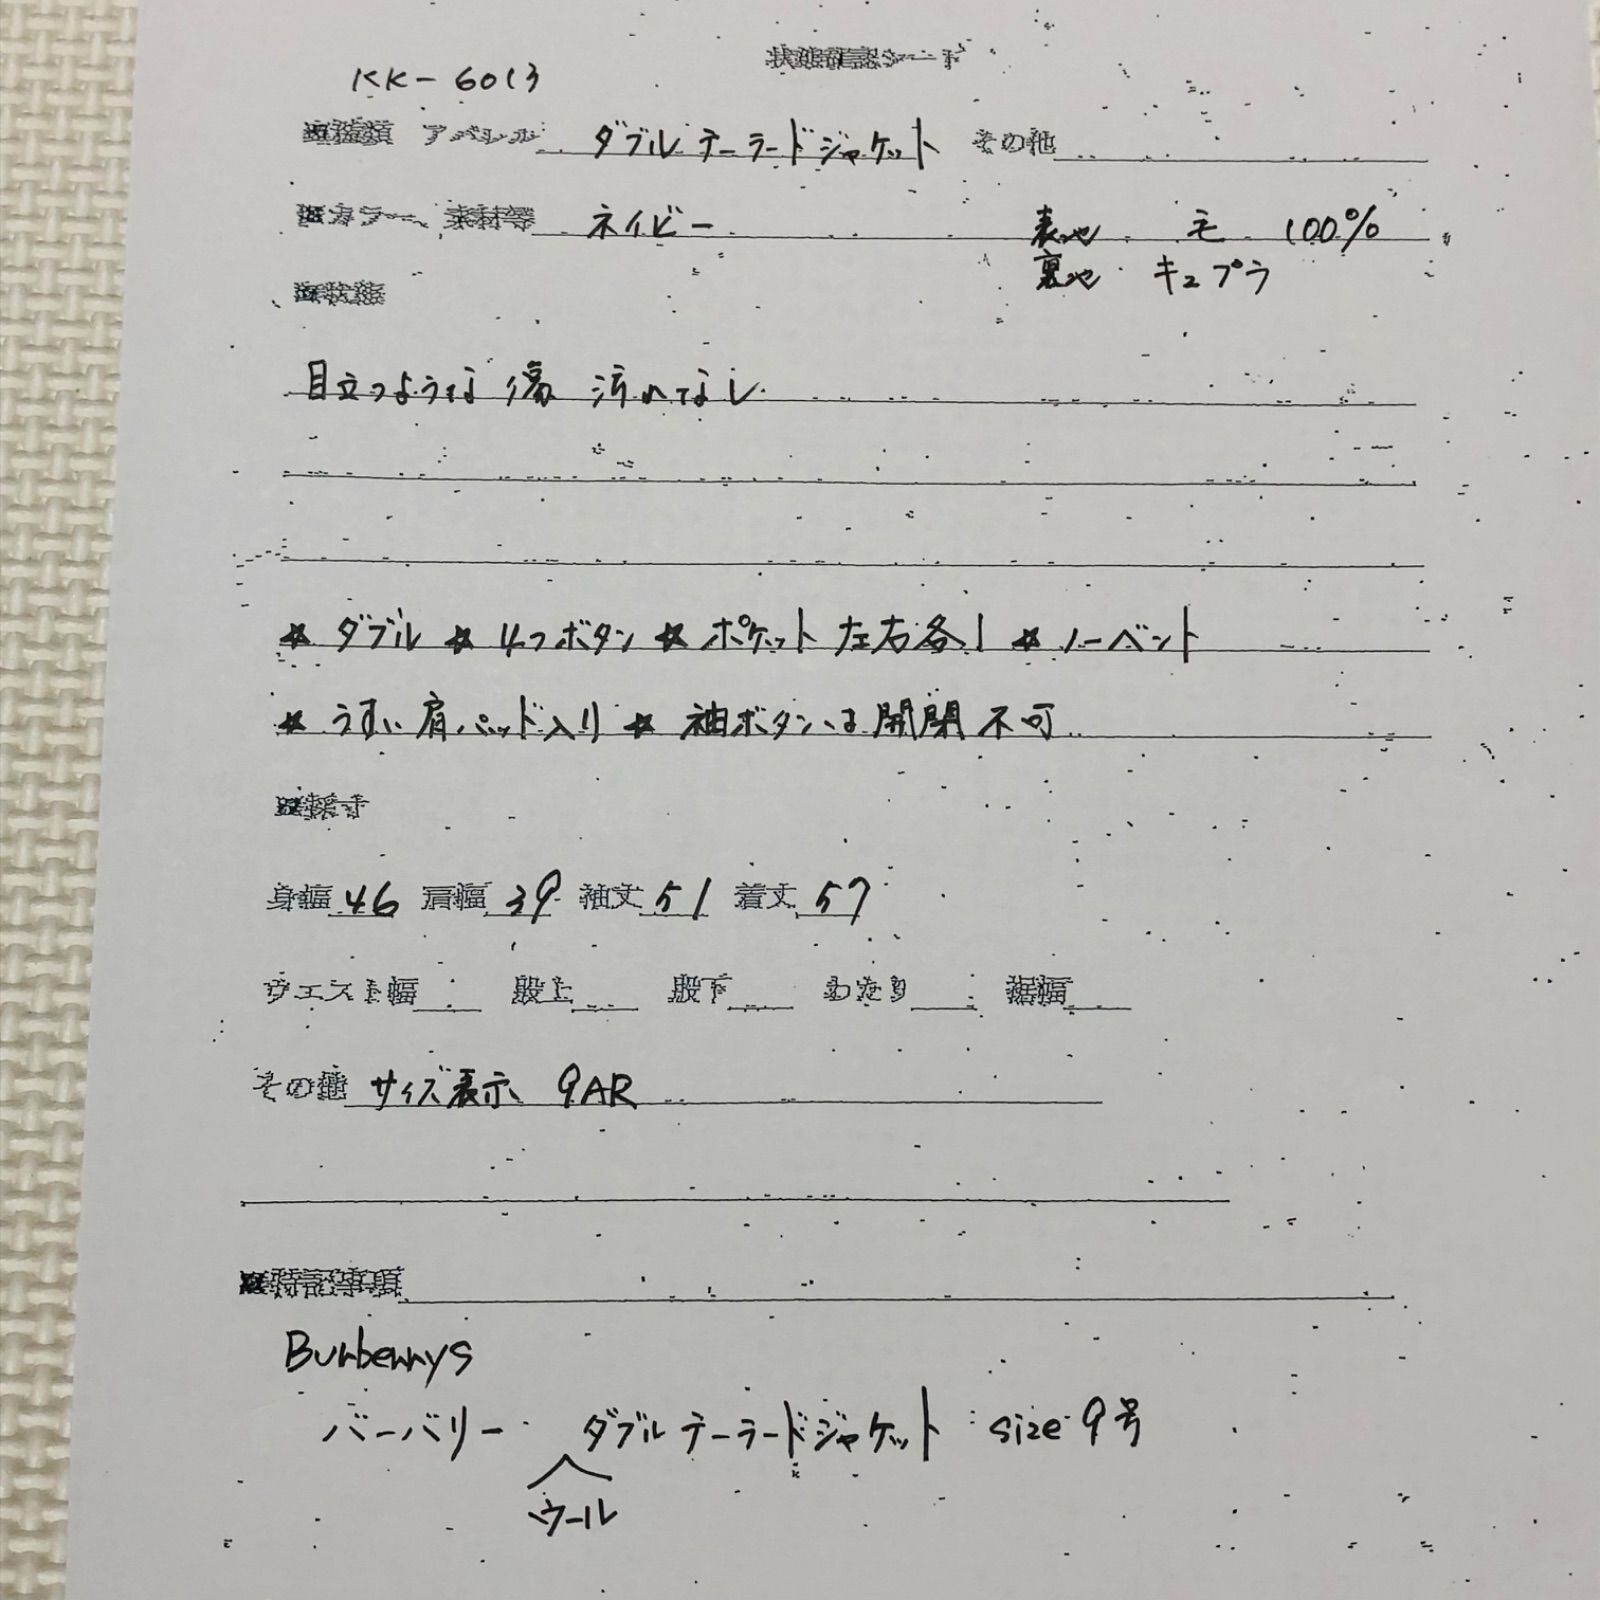 状態確認シート
KK-6013
種類 アパレル ダブルテーラードジャケット その他
カラー、素材等 ネイビー 表地 毛 100%
裏地 キュプラ
状態
目立つような傷 汚れなし
★ ダブル ★ 4つボタン ★ ポケット 左右各1 ★ ノーベント
★ うすい肩パッド入り ★ 袖ボタンは開閉不可
採寸
身幅 46 肩幅 39 袖丈 51 着丈 57
ウエスト幅 股上 股下 わたり 裾幅
その他 サイズ表示 9AR
特記事項
Burberrys
バーバリー ダブルテーラードジャケット size 9号
ウール